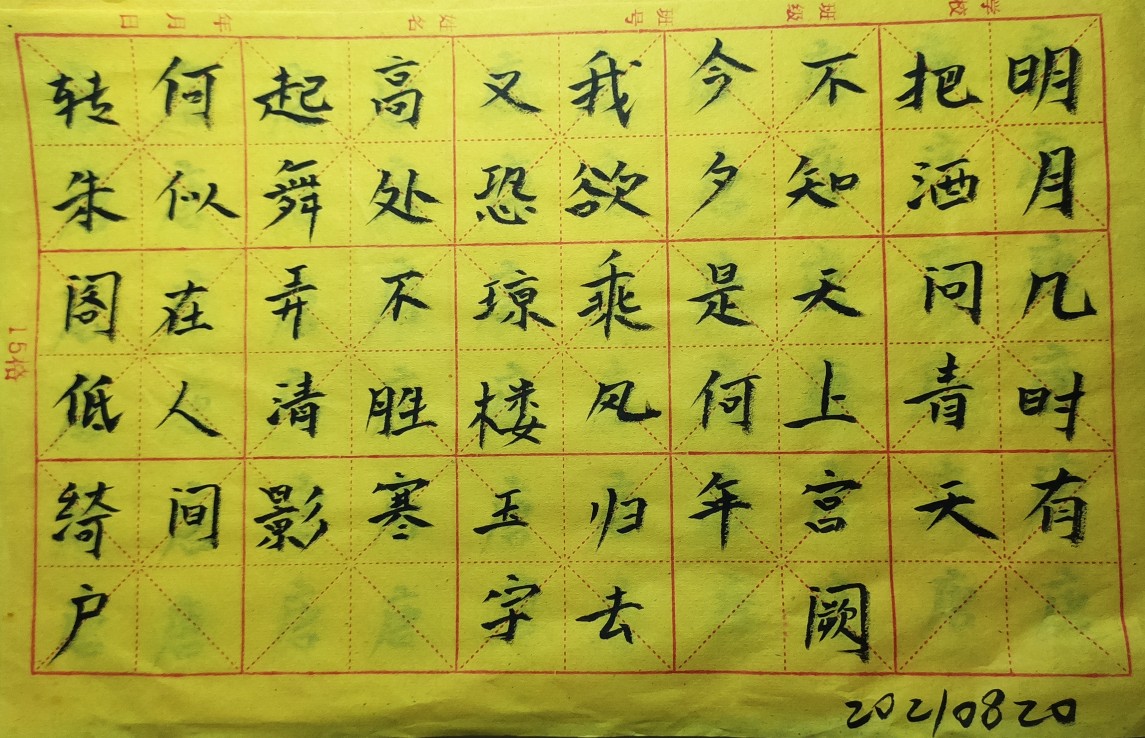 学校 班级 班号 姓名 年 月 日
明月几时有
把酒问青天
不知天上宫阙
今夕是何年
我欲乘风归去
又恐琼楼玉宇
高处不胜寒
起舞弄清影
何似在人间
转朱阁低绮户
15格
20210820